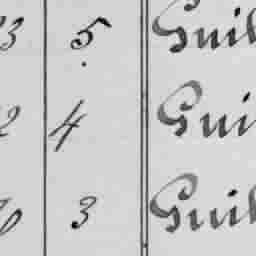 3 5 Guil
2 4 Gui
0 3 Guil